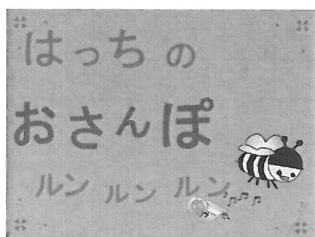 はっちの
おさんぽ
ルンルンルン